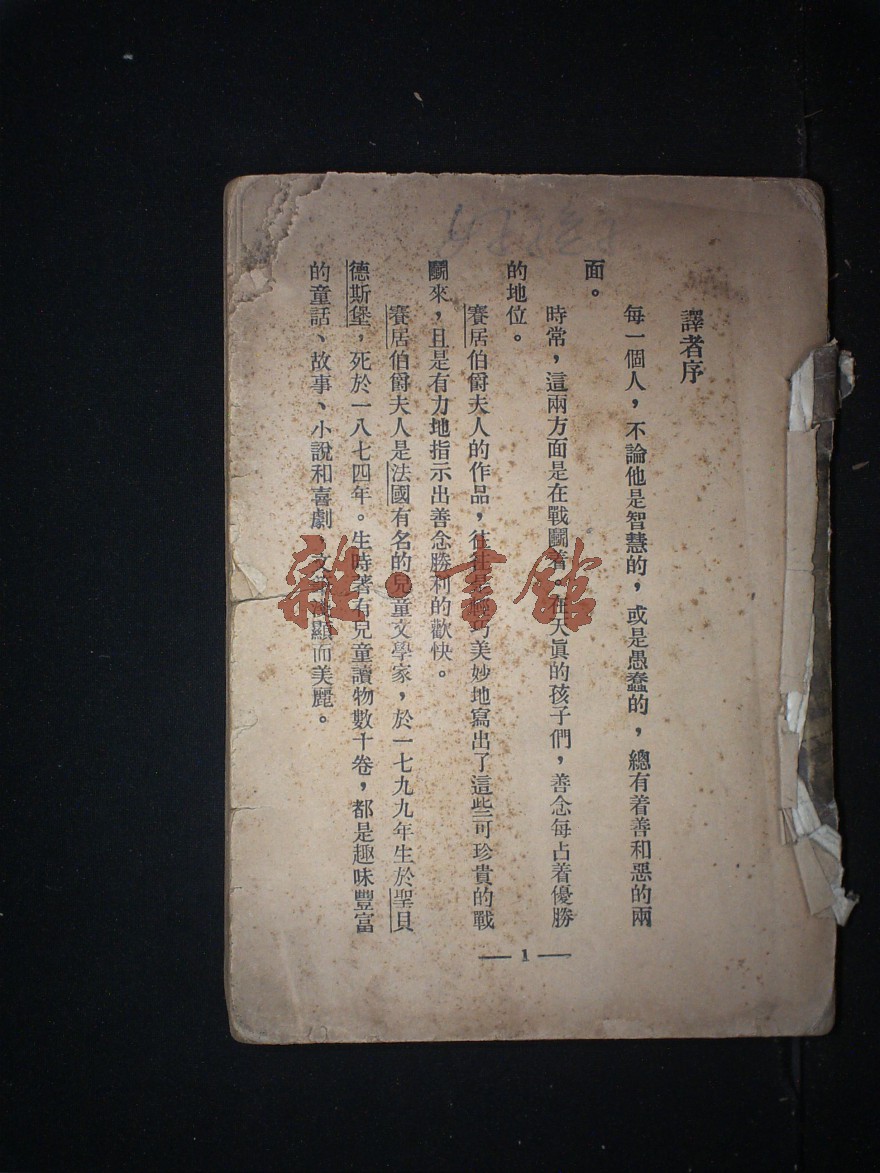 譯者序
每一個人，不論他是智慧的，或是愚蠢的，總有着善和惡的兩
面。
時常，這兩方面是在戰鬭着。在天眞的孩子們，善念每占着優勝
的地位。
賽居伯爵夫人的作品，往往是輕巧美妙地寫出了這些可珍貴的戰
鬭來，且是有力地指示出善念勝利的歡快。
賽居伯爵夫人是法國有名的兒童文學家，於一七九九年生於聖貝
德斯堡，死於一八七四年。生時著有兒童讀物數十卷，都是趣味豐富
的童話、故事、小說和喜劇 文 顯而美麗。
— 1 —
雜·書館